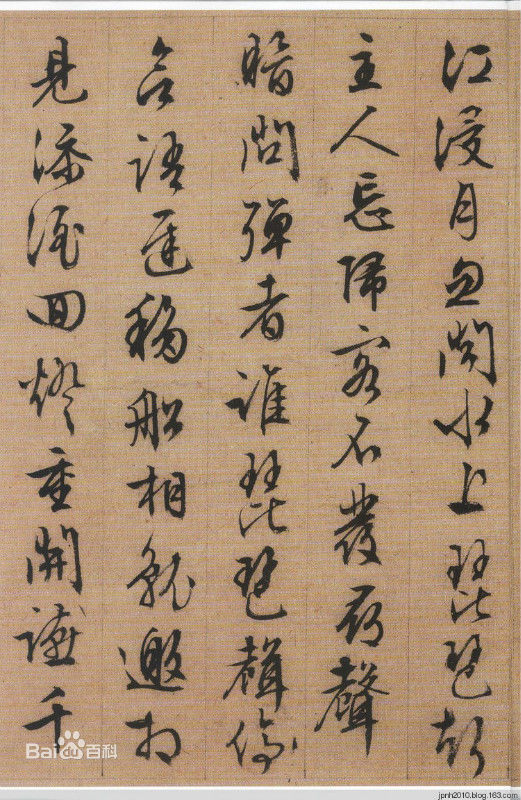 江浸月忽聞水上琵琶聲
主人忘歸客不發尋聲
暗問彈者誰琵琶聲停
含語遲移船相就邀相
見添酒回燈重開讌千
Baidu百科
jpnh2010.blog.163.com